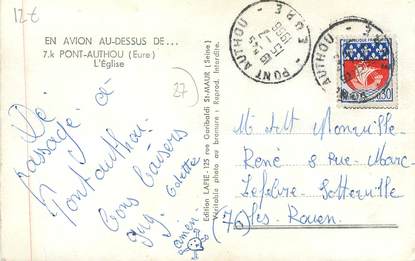 12€
EN AVION AU-DESSUS DE...
7.k PONT-AUTHOU (Eure)
L'Église
27
De
passage à
Pontauthou.
Bons baisers
Guy. Colette
Edition LAPIE - 125 rue Garibaldi St-MAUR (Seine)
Véritable photo au bromure : Reprod. Interdite.
PONT AUTHOU - EURE
1966
0,30
M. et Mme
René 8 Rue Marc-
Lefebvre Sotteville
(76) lès Rouen